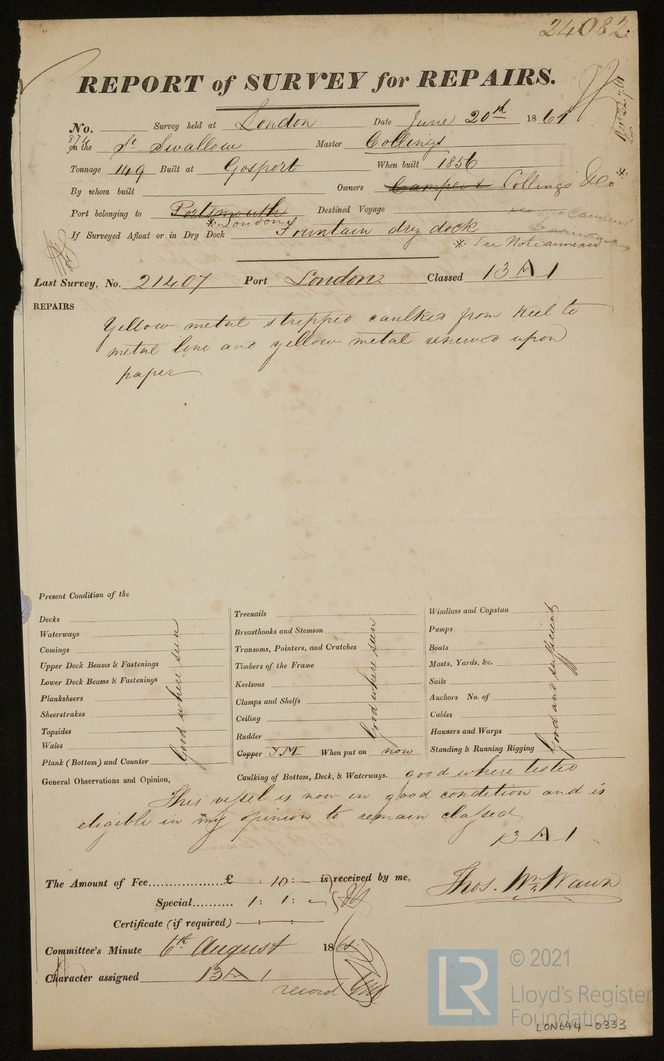 24082
REPORT of SURVEY for REPAIRS.
No. Survey held at London Date June 20th 1861
on the Sr. Swallow Master Collings
Tonnage 149 Built at Gosport When built 1856
By whom built Owners Camper & Collings & Co *
Port belonging to Portsmouth Destined Voyage
* London
If Surveyed Afloat or in Dry Dock Fountain dry dock
* See Note annexed
Last Survey, No. 21407 Port London Classed 13 A 1
REPAIRS
Yellow metal stripped caulked from keel to
metal line and yellow metal renewed upon
paper
Present Condition of the
Decks
Waterways
Comings
Upper Deck Beams & Fastenings
Lower Deck Beams & Fastenings
Planksheers
Sheerstrakes
Topsides
Wales
Plank (Bottom) and Counter
Good where seen
Treenails
Breasthooks and Stemson
Transoms, Pointers, and Crutches
Timbers of the Frame
Keelsons
Clamps and Shelfs
Ceiling
Rudder
Copper YM When put on now
Good where seen
Windlass and Capstan
Pumps
Boats
Masts, Yards, &c.
Sails
Anchors No. of
Cables
Hawsers and Warps
Standing & Running Rigging
Good and sufficient
General Observations and Opinion, Caulking of Bottom, Deck, & Waterways. good where tested
This vessel is now in good condition and is
eligible in my opinion to remain classed
13 A 1
The Amount of Fee £ : 10 : – is received by me,
Special 1 : 1 : –
Thos. Wm. Wawn
Certificate (if required)
Committee's Minute 6th August 1861
Character assigned 13 A 1
record
© 2021
LR
Lloyd's Register
Foundation
LON644-0333